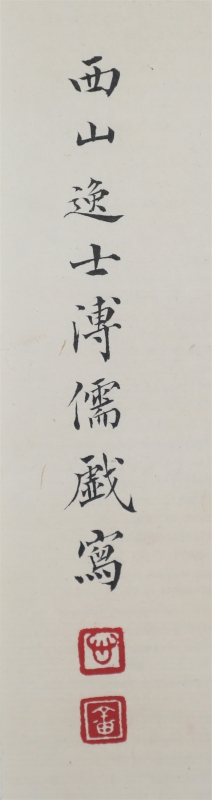 西山逸士溥儒戲寫